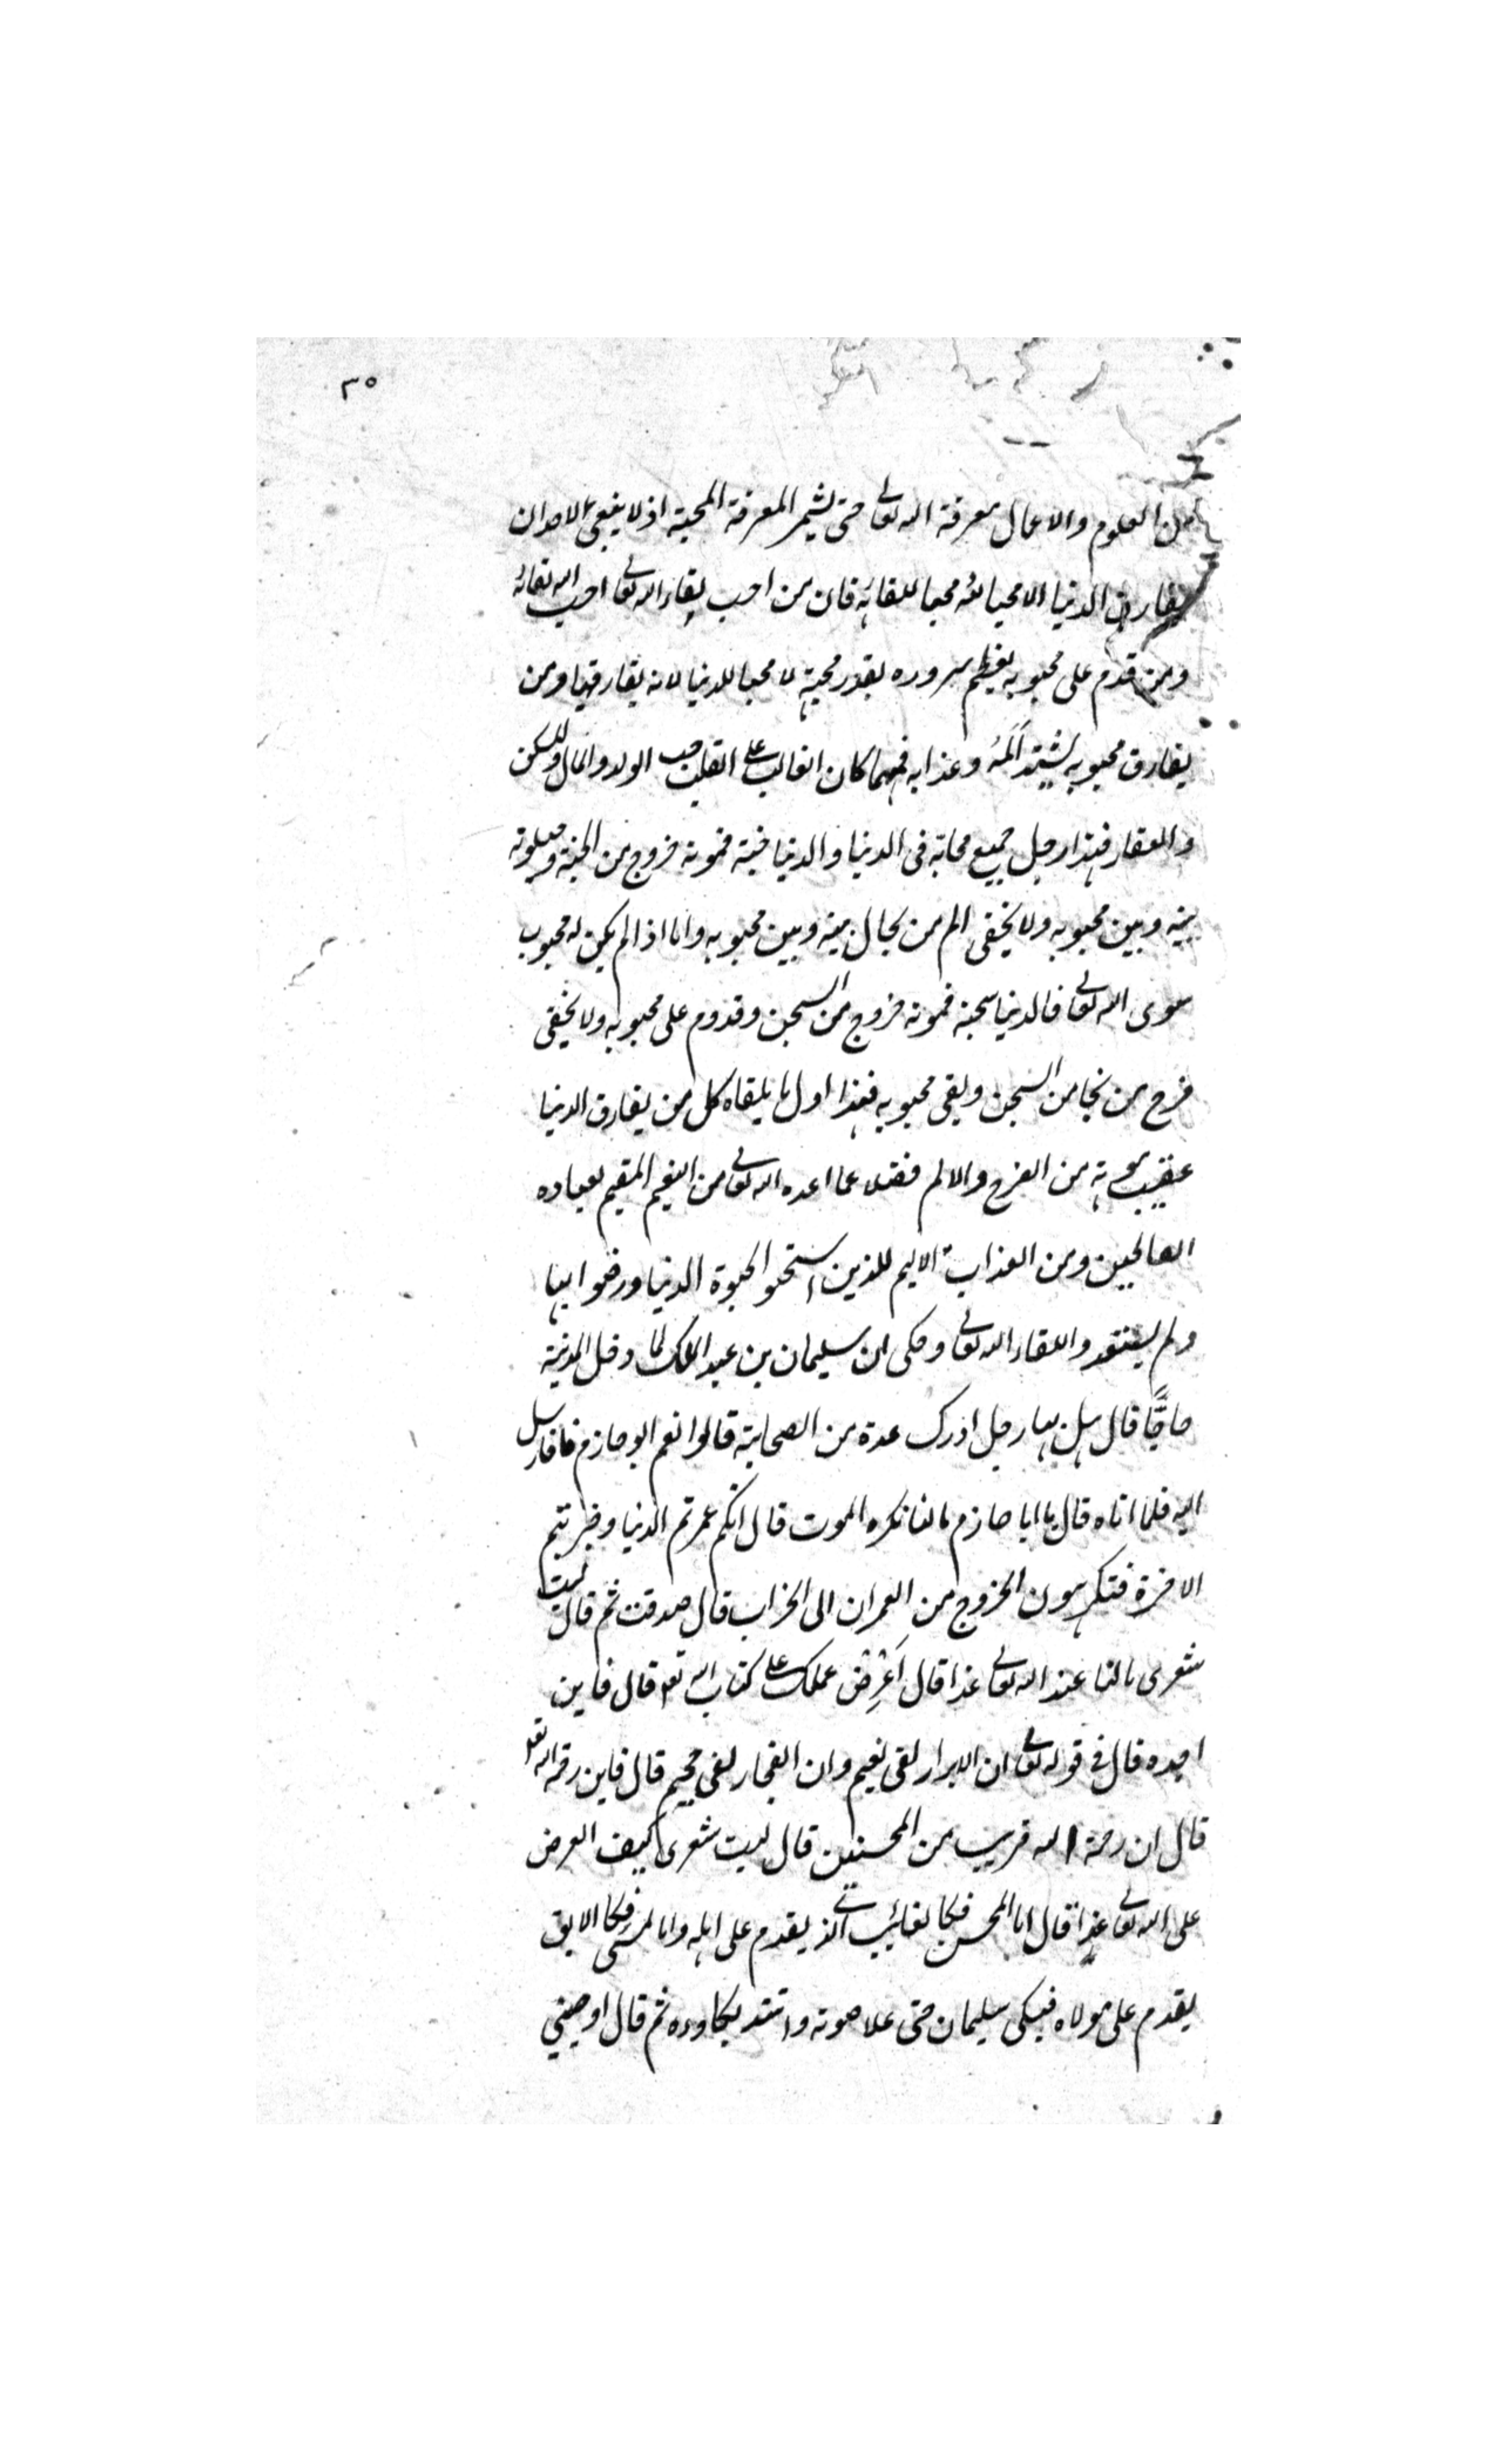 ٣٥
من العلوم والاعمال معرفة الله تعالى حتى يثمر المعرفة المحبة اذ لا ينبغي لاحد ان
يفارق الدنيا الا محبا لله محبا للقائه فان من احب لقاء الله تعالى احب الله لقائه
ومن قدم على محبوبه يعظم سروره بقدر محبته لا محبا للدنيا لانه يفارقها ومن
يفارق محبوبه يشتد اَلَمُهُ وعذابه فمهما كان الغالب على القلب حب الولد والمال والمسكن
والعقار فهذا رجل جميع محابه في الدنيا والدنيا جنته فموته خروج من الجنة وحيلولة
بينه وبين محبوبه ولا يخفى الم من يحال بينه وبين محبوبه واما اذا لم يكن له محبوب
سوى الله تعالى فالدنيا سجنه فموته خروج من السجن وقدوم على محبوبه ولا يخفى
فرح من نجا من السجن ولقى محبوبه فهذا اول ما يلقاه كل من يفارق الدنيا
عقيب موته من الفرح والالم فضلا عما اعده الله تعالى من النعيم المقيم لعباده
الصالحين ومن العذاب الاليم للذين استحبوا الحيوة الدنيا ورضوا بها
ولم يستعدوا للقاء الله تعالى وحكى ان سليمان بن عبد الملك لما دخل المدينة
حاجًّا قال هل بها رجل ادرك عدة من الصحابة قالوا نعم ابو حازم فارسل
اليه فلما اتاه قال يا ابا حازم ما لنا نكره الموت قال انكم عمرتم الدنيا وخربتم
الاخرة فتكرهون الخروج من العمران الى الخراب قال صدقت ثم قال ليت
شعرى ما لنا عند الله تعالى غدا قال اَعْرِضْ عملك على كتاب الله تعالى قال فاين
اجده قال في قوله تعالى ان الابرار لفى نعيم وان الفجار لفى جحيم قال فاين رحمة الله تعالى
قال ان رحمة الله قريب من المحسنين قال ليت شعرى كيف العرض
على الله تعالى غدا قال اما المحسن فكالغائب الذى يقدم على اهله واما المسئ فكالابق
يقدم على مولاه فبكى سليمان حتى علا صوته واشتد بكاوه ثم قال اوصيني